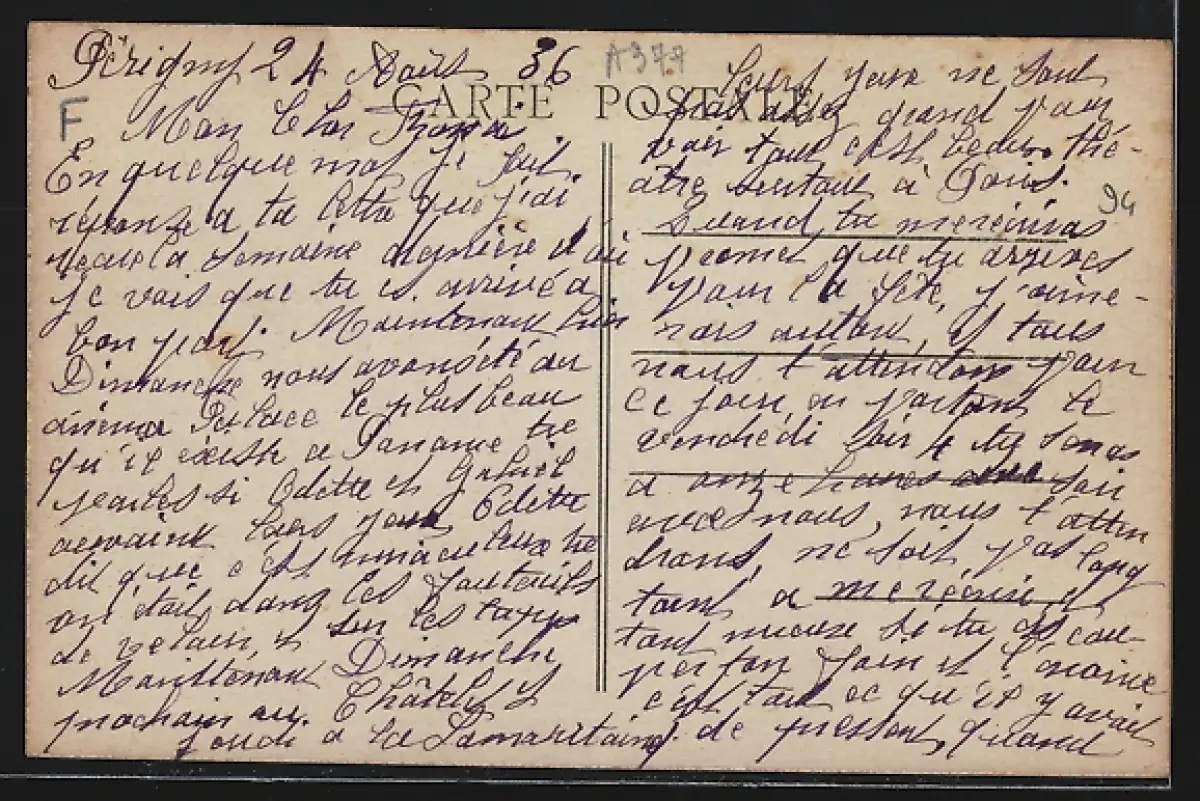 Périgny 24 Août 36
A377
F
CARTE POSTALE
Mon Cher
En quelque mot je fait
réponse a ta lettre que j'ai
reçu la semaine dernière et ou
je vois que tu es arrivé a
bon port. Maintenant
Dimanche nous avons été au
cinéma Palace le plus beau
qu'il existe a Paname tu
parles si Odette et Gabriel
ouvraint leurs yeux Odette
dit que c'est
on était dans les fauteuils
de velour, et sur les tapis
Maintenant Dimanche
prochain au Châtelet et
Jeudi a la Samaritaine.
Leurs yeux ne sont
pas assez grand pour
voir tout c'est beau thé-
âtre surtout à Paris.
94
Quand tu
que tu arrives
pour la fête, j'aime-
rais autant, et tous
nous t'attendons pour
ce jour, en partant le
vendredi soir tu seras
a onze heures soir
avec nous, nous t'atten
drons, ne soit pas long
tant a
tant mieux si tu es cou-
per ton foin et l'avoine
c'est tout ce qu'il y avait
de pressant, quand